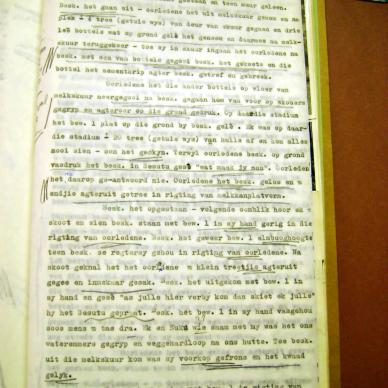 Besk. het gaan uit - oorledene het uit melkskuur gekom en na
plek - 4 tree (getuie wys) van deur van skuur gegaan en drie
leë bottels wat op grond gelê het geneem en daarmee na melk-
skuur teruggekeer - toe ek in skuur ingaan het oorledene na
besk. met een van bottels gegooi besk. het gekoets en die
bottel het sementkrip agter besk. getref en gebreek.
Oorledene het die ander bottels op vloer van
melkskuur neergegooi na besk. gegaan hom van voor op skouers
gegryp en agteroor op die grond gedruk. Op daardie stadium
het bew. 1 plat op die grond by besk. gelê. Ek was op daar-
die stadium - 20 tree (getuie wys) van hulle af en kon alles
mooi sien - son het geskyn. Terwyl oorledene besk. op grond
vasdruk het besk. in Sesutu gesê "wat maak jy nou". Oorledene
het daarop ge-antwoord nie. Oorledene het besk. gelos en 'n
endjie agteruit getree in rigting van melkkamplatvorm.
Besk. het opgestaan - volgende oomblik hoor ek
skoot en sien besk. staan met bew. 1 in sy hand gerig in die
rigting van oorledene. Besk. het geweer bew. 1 elmbooghoogte
teen besk. se regtersy gehou in rigting van oorledene. Na
skoot geknal het het oorledene 'n klein treetjie agteruit
gegee en inmekaar gesak. Besk. het uitgekom met bew. 1 in
sy hand en gesê "as julle hier verby kom dan skiet ek julle"
hy het Sesutu gepraat. Besk. het bew. 1 in sy hand vasgehou
soos mens 'n tas dra. Ek en Suku wie saam met my was het ons
wateremmers gegryp en weggehardloop na ons hutte. Toe besk.
uit die melkskuur kom was sy voorkop gefrons en het kwaad
gelyk.